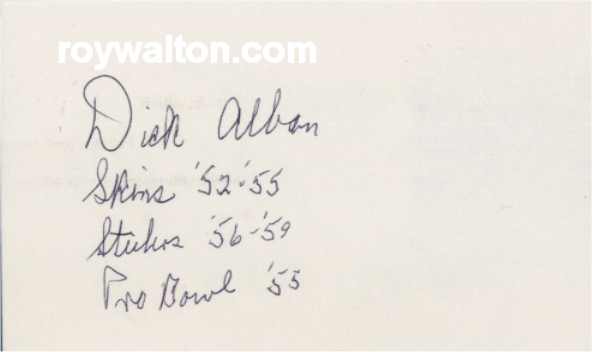 roywalton.com
Dick Alban
Skins '52-'55
Stulers '56-'59
Pro Bowl '55